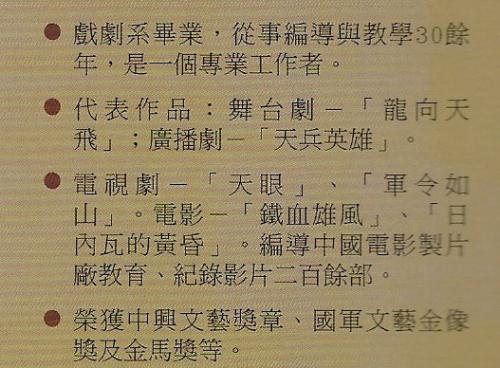 ● 戲劇系畢業，從事編導與教學30餘
年，是一個專業工作者。
● 代表作品：舞台劇－「龍向天
飛」；廣播劇－「天兵英雄」。
● 電視劇－「天眼」、「軍令如
山」。電影－「鐵血雄風」、「日
內瓦的黃昏」。編導中國電影製片
廠教育、紀錄影片二百餘部。
● 榮獲中興文藝獎章、國軍文藝金像
獎及金馬獎等。